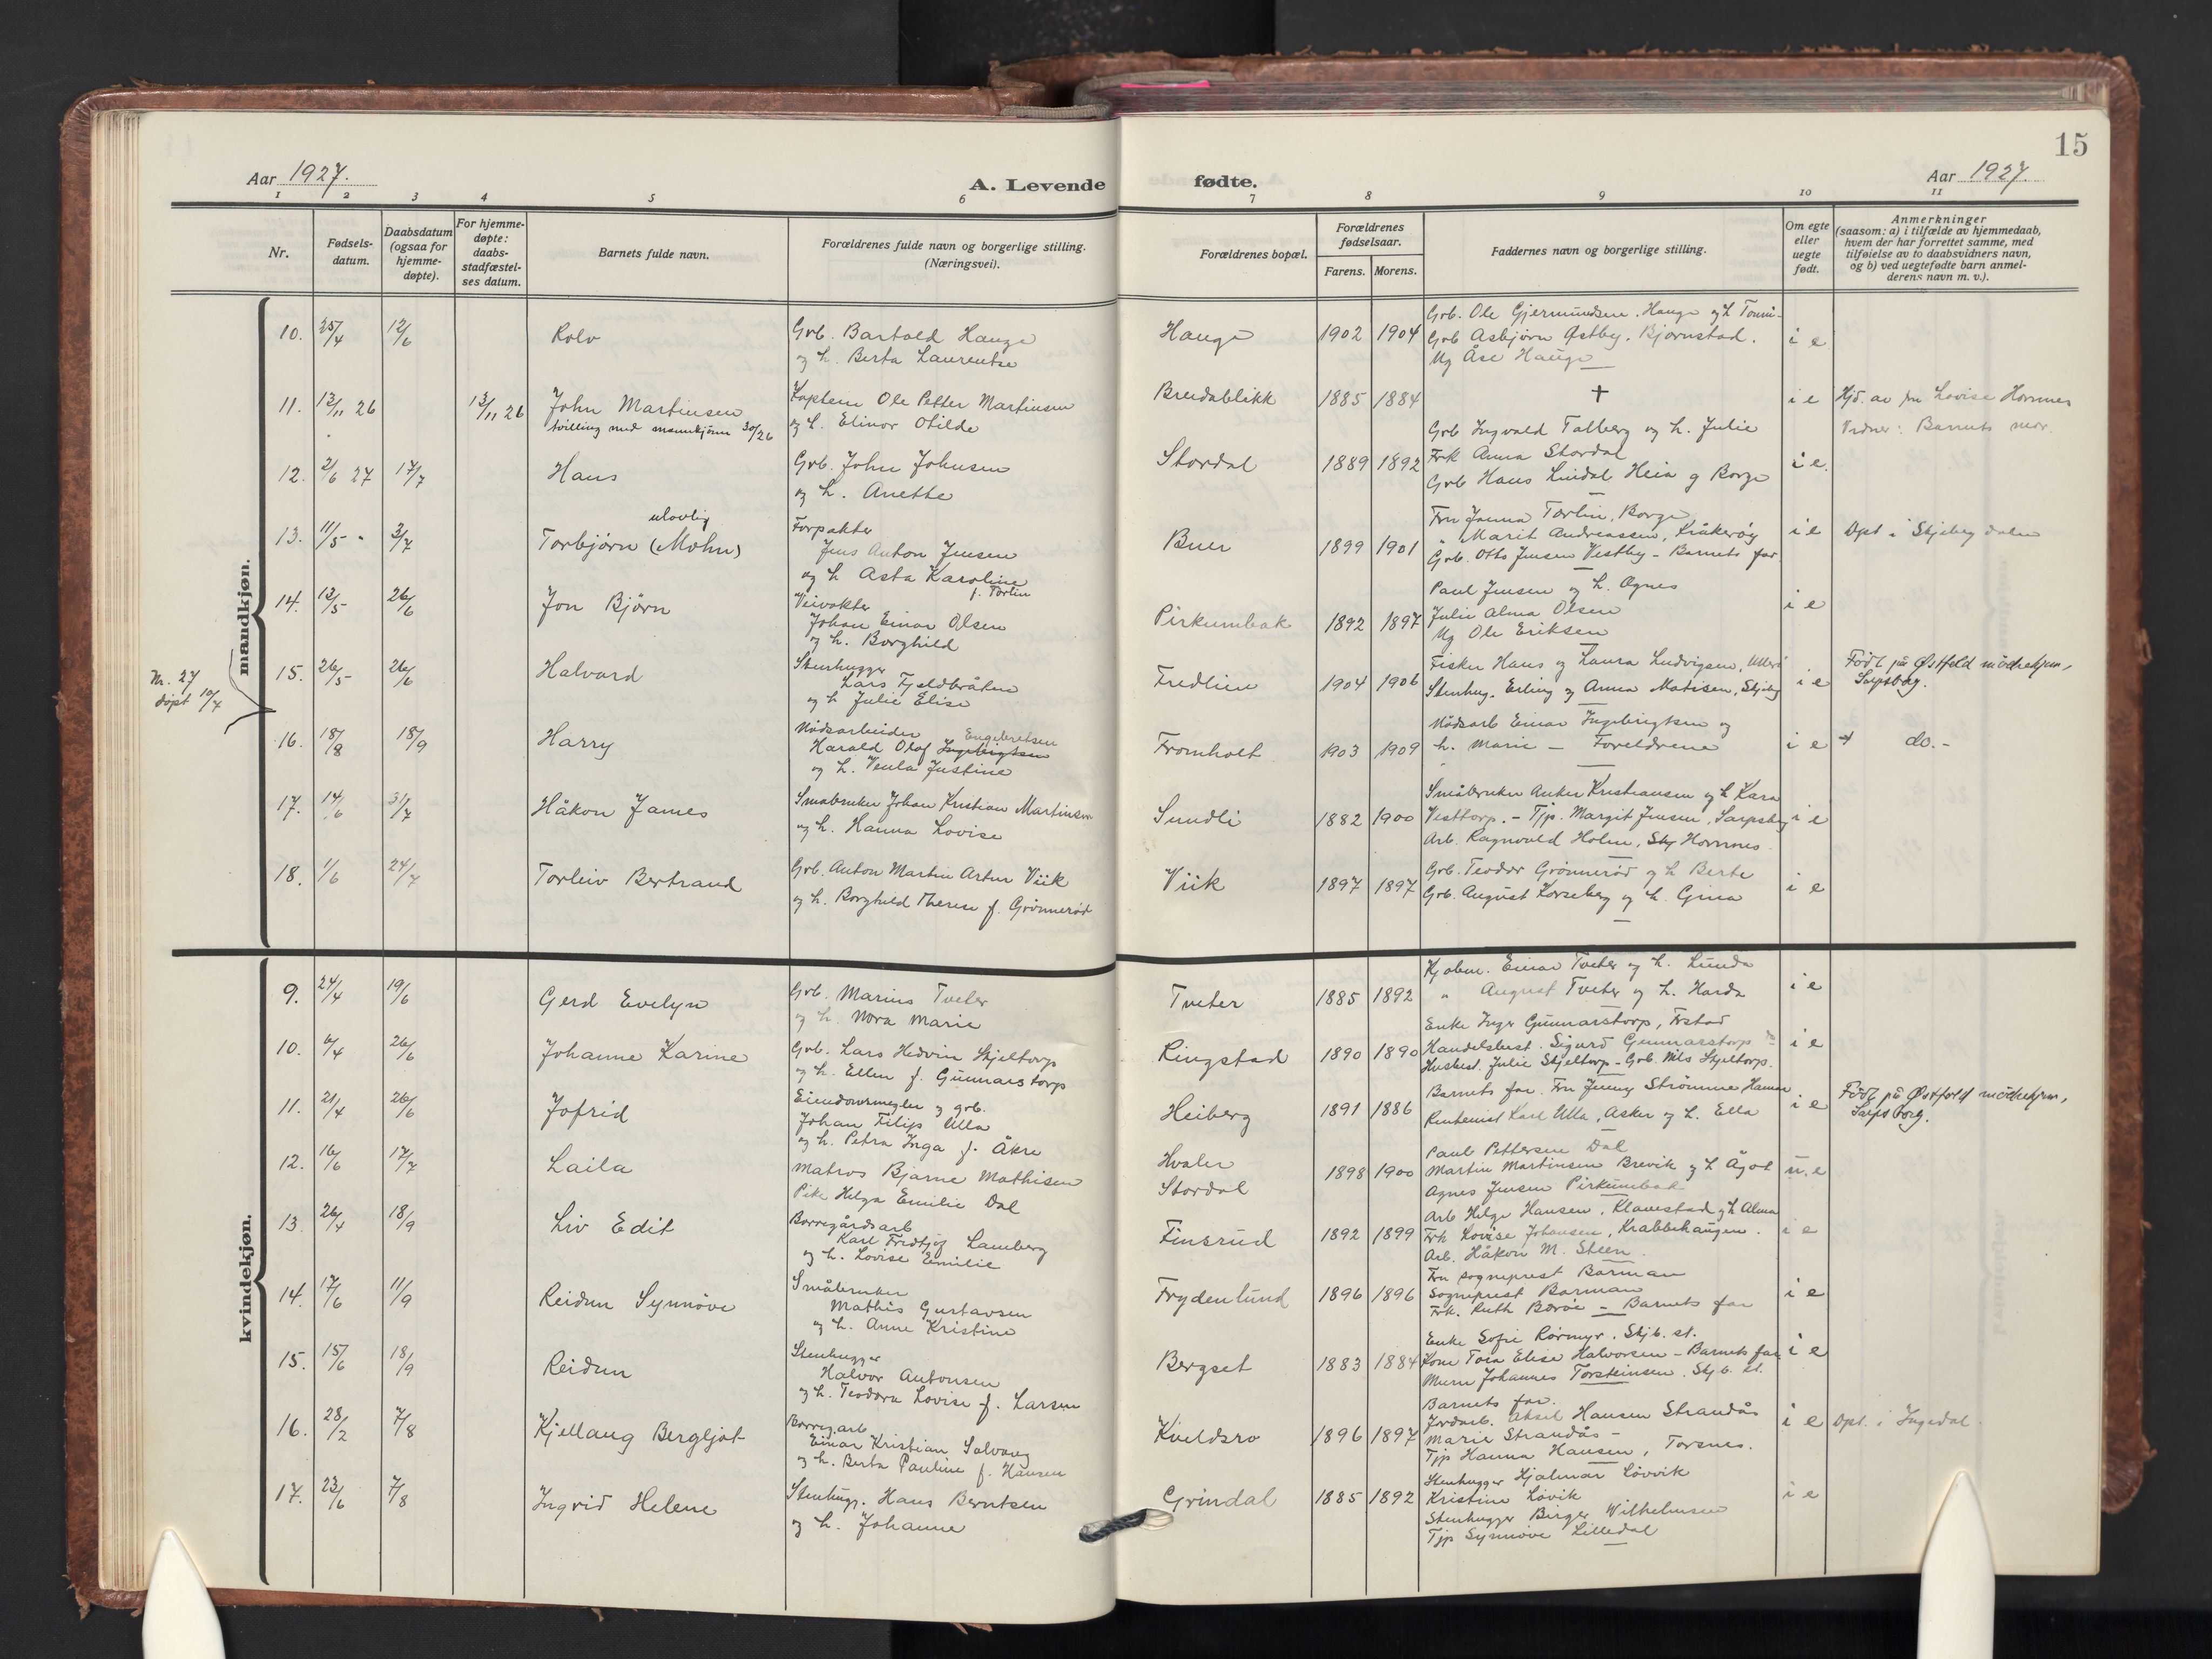 15
Aar 1927.
A. Levende
fødte.
Aar 1927.
1 2 3 4 5 6 7 8 9 10 11
Nr.
Fødsels-
datum.
Daabsdatum
(ogsaa for
hjemme-
døpte).
For hjemme-
døpte:
daabs-
stadfæstel-
ses datum.
Barnets fulde navn.
Forældrenes fulde navn og borgerlige stilling.
(Næringsvei).
Forældrenes bopæl.
Forældrenes
fødselsaar.
Farens. Morens.
Faddernes navn og borgerlige stilling.
Om egte
eller
uegte
født.
Anmerkninger
(saasom: a) i tilfælde av hjemmedaab,
hvem der har forrettet samme, med
tilføielse av to daabsvidners navn,
og b) ved uegtefødte barn anmel-
derens navn m. v.).
mandkjøn.
Nr. 27
døpt 10/4
10. 25/4 12/6 Rolv
Grb. Bartold Hauge
og h. Berta Laurentse
Hauge 1902 1904
Grb. Ole Gjermundsen, Hauge og h. Tomi-
Grb Asbjørn Østby, Bjørnstad.
Ug Åse Hauge
i e
11. 13/11 26 13/11 26 John Martinsen
tvilling med mannkjønn 30/26
Kaptein Ole Petter Martinsen
og h. Elinor Otilde
Breidablikk 1885 1884 + i e
Hjd. av fru Lovise Hornnes
Vidner: Barnets mor.
12. 2/6 27 17/7 Hans
Grb. John Johnsen
og h. Anette
Stordal 1889 1892
Grb Ingvald Talberg og h. Julie
Frk Anna Stordal
Grb Hans Lindal Heia og Borge
i e.
13. 11/5 " 3/7 Torbjørn (Mohn)
ulovlig
Forpakter
Jens Anton Jensen
og h Asta Karoline
f. Torlin
Buer 1899 1901
Fru Janna Torlin, Borge
" Marit Andreassen, Kråkerøy
Grb. Otto Jensen Vestby - Barnets far
i e Døpt i Skjeberg dalen
14. 13/5 26/6 Jon Bjørn
Veivokter
Johan Einar Olsen
og h. Borghild
Pirkumbak 1892 1897
Paul Jensen og h. Agnes
Julie Alma Olsen
Ug Ole Eriksen
i e
15. 26/5 26/6 Halvard
Stenhugger
Lars Fjeldbråten
og h Julie Elise
Fredlien 1904 1906
Fisker Hans og Laura Ludvigsen, Ullerø
Stenhug. Erling og Anna Matisen, Skjeberg
i e
Født på Østfold mødrehjem,
Sarpsborg.
16. 18/8 18/9 Harry
Nødsarbeider
Engebretsen
Harald Olaf Ingebrigtsen
og h. Venla Justine
Fromholt 1903 1909
Nødsarb Einar Ingebrigtsen og
h. Marie - Foreldrene
i e do. -
17. 14/6 31/7 Håkon James
Småbruker Johan Kristian Martinsen
og h. Hanna Lovise
Sundli 1882 1900
Småbruker Anker Kristiansen og h Kara
Vesttorp. - Tjp. Margit Jensen, Sarpsbg
Arb. Ragnvald Holm, Skj Hornnes
i e
18. 1/6 24/7 Torleiv Bertrand
Grb. Anton Martin Artur Viik
og h. Borghild Therese f. Grønnerød
Viik 1897 1897
Grb. Teodor Grønnerød og h Berte
Grb. August Korseberg og h. Gina
i e
kvindekjøn.
9. 24/4 19/6 Gerd Evelyn
Grb. Marius Tveter
og h. Nora Marie
Tveter 1885 1892
Kjøbm. Einar Tveter og h. Lunda
" August Tveter og h. Harda
i e
10. 6/4 26/6 Johanne Karine
Grb. Lars Hedvin Skjeltorp
og h. Ellen f. Gunnarstorp
Ringstad 1890 1890
Enke Inger Gunnarstorp, Frstad
Handelsbest. Sigurd Gunnarstorp
Husbest. Julie Skjeltorp - Grb. Nils Skjeltorp.
i e
11. 21/4 26/6 Jofrid
Eiendomsmegler og grb.
Johan Filip Ulla
og h. Petra Inga f. Åkre
Heiberg 1891 1886
Barnets far. Fru Jenny Strømme Hamar
Rentenist Karl Ulla, Asker og h. Ella
i e
Født på Østfold mødrehjem,
Sarpsborg.
12. 16/6 17/7 Laila
Matros Bjarne Mathisen
Pike Helga Emilie Dal
Hvaler
Stordal
1898 1900
Paul Pettersen Dal
Martin Martinsen Brevik og h Ågot
Agnes Jensen Pirkumbak
u. e
13. 26/4 18/9 Liv Edit
Borregårdsarb
Karl Fredtjof Lamberg
og h. Lovise Emilie
Finsrud 1892 1899
Arb Helge Hansen, Klavestad og h Alma
Frk Lovise Johansen, Krabbehaugen.
Arb. Håkon M. Steen.
i e
14. 17/6 11/9 Reidun Synnøve
Småbruker
Mathis Gustavsen
og h. Anne Kristine
Frydenlund 1896 1896
Fru sogneprest Barman
Sogneprest Barman
Frk. Ruth Bærøe - Barnets far
i e
15. 15/6 18/9 Reidun
Stenhugger
Halvor Antonsen
og h. Teodora Lovise f. Larsen
Bergset 1883 1884
Enke Sofie Rørmyr. Skjb. st.
Kone Tora Elise Halvorsen - Barnets far
Murer Johannes Torsteinsen. Skjb. st.
i e
16. 28/2 7/8 Kjellaug Bergljot
Borreg.arb
Einar Kristian Solvang
og h. Berta Pauline f. Hansen
Kveldsro 1896 1897
Barnets far.
Jordarb. Aksel Hansen Strandås
Marie Strandås -
Tjp Hanna Hansen, Torsnes.
i e Døpt. i Ingedal.
17. 23/6 7/8 Ingrid Helene
Stenhugg. Hans Berntsen
og h. Johanne
Grindal 1885 1892
Stenhugger Hjalmar Løvvik
Kristine Løvik
Stenhugger Birger Wilhelmsen
Tjp Synnøve Lilledal
i e